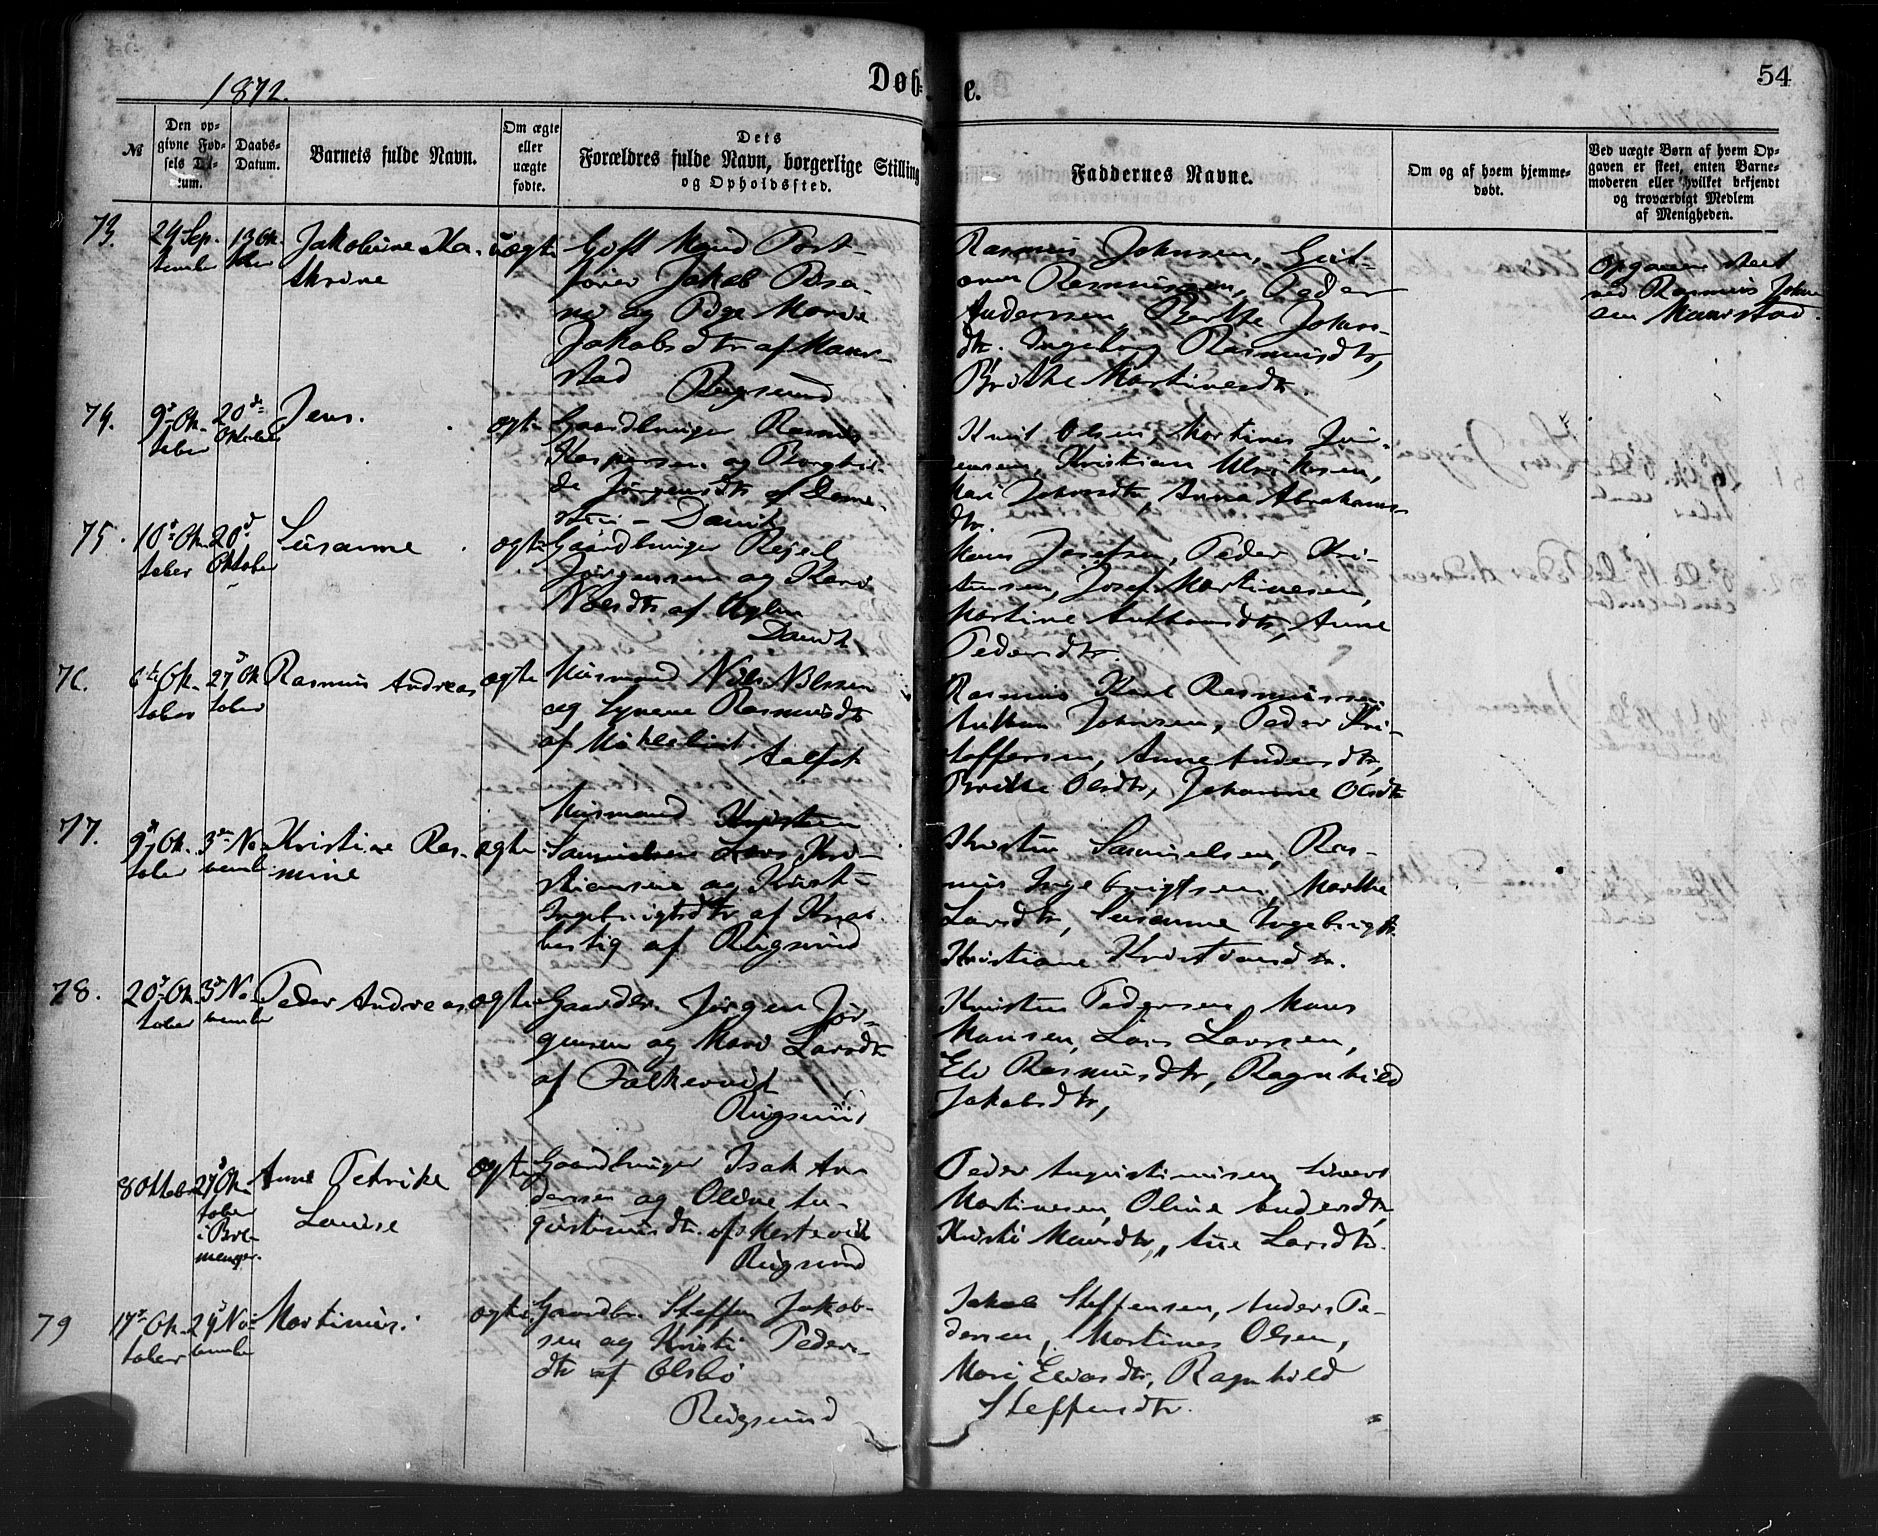 1872.
Døb-
e.
54
№
Den op-
givne Fød-
sels Da-
tum.
Daabs-
Datum.
Barnets fulde Navn.
Om ægte
eller
uægte
fødte.
Dets
Forældres fulde Navn, borgerlige Stilling
og Opholdssted.
Faddernes Navne.
Om og af hvem hjemme-
døbt.
Ved uægte Børn af hvem Op-
gaven er skeet, enten Barne-
moderen eller hvilket bekjendt
og troværdigt Medlem
af Menigheden.
73.
24 Sep-
tember
13 Ok-
tober
Jakobine Ka-
thrine
uægte
Gift Mand
Jakob
og Pige
Jakobsdtr af Maur-
stad
Rugsund
Rasmus Johnsen,
Rasmussen, Peder
Anderssen, Berthe Johns-
dtr. Ingeborg Rasmusdtr,
Brithe Martinusdtr
Opgaven skeet
ved Rasmus John-
sen Maurstad.
74.
9d Ok-
tober
20de
Oktober
Jens.
ægte
Gaardbruger Rasmus
Kaspersen og Borghil-
de Jørgensdtr af Dome-
stein - Davik
Knut Olsen, Martinus
Kristian Ulriksen,
Kari Johnsdtr, Anna Abrahams-
dtr.
75.
10d Ok-
tober
20d
Oktober
Susanne
ægte
Gaardbruger
Jørgensen og Kari
Nilsdtr af
Davik
Hans Josefsen, Peder Kri-
stensen, Josef Martinesen,
Martine Anthonsdtr, Anne
Pedersdtr.
76.
6te Ok-
tober
27d Ok-
tober
Rasmus Andreas
ægte
Husmand Nils Nilssen
og Rasmusdtr
af
Aalfot
Rasmus Karl Rasmussen
Anthon Johnsen, Peder Kri-
stoffersen, Anne Andersdtr,
Brithe Olsdtr, Johanne Olsdtr
77.
9d Ok-
tober
3die No-
vember
Kristine Ras-
mine
ægte
Husmand Kristen
Samuelsen Lars Kri-
stiansen og Kristi
Ingebrigtsdtr af
af Rugsund
Kristen Samuelsen, Ras-
mus Ingebrigtsen, Marthe
Larsdtr, Susanne Ingebrigtsdtr.
Kristiane Kristensdtr.
78.
20d Ok-
tober
3d No-
vember
Peder Andreas
ægte
Gaardbr. Jørgen Jør-
gensen og Mari Larsdtr
af Falkevik
Rugsund
Kristen Pedersen, Hans
Hansen, Lars Larssen,
Eli Rasmusdtr, Ragnhild
Jakobsdtr,
8 Oktob
27d Ok-
tober
i Bre-
manger.
Anne Petrike
Louise
ægte
Gaardbruger Isak An-
dersen og Oline Au-
gustinusdtr. af
Rugsund
Peder Augustinusen,
Martinesen, Oline Andersdtr,
Kristi Hansdtr, Ane Larsdtr.
79
17d Ok-
tober
24d No-
vember
Martinus.
ægte
Gaardbr. Steffen Jakob-
sen og Kristi Peders-
dtr af Olsbø
Rugsund
Jakob Steffensen, Anders Pe-
dersen, Martines Olsen,
Mari Eliasdtr, Ragnhild
Steffensdtr.